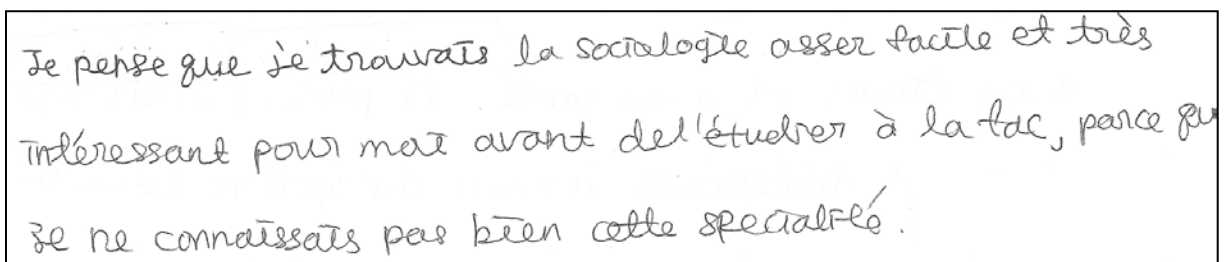 Je pense que je trouvais la sociologie asser facile et très
intéressant pour moi avant del'étudier à la fac, parce qu
je ne connaissais pas bien cette specialité.